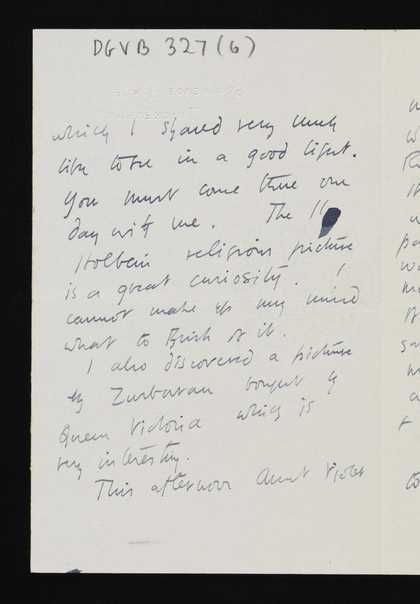 DGVB 327 (6)
which I should very much
like to see in a good light.
You must come there one
day with me. The
Holbein religious picture
is a great curiosity. I
cannot make up my mind
what to think of it.
I also discovered a picture
by Zurbaran bought by
Queen Victoria which is
very interesting.
This afternoon Aunt Violet